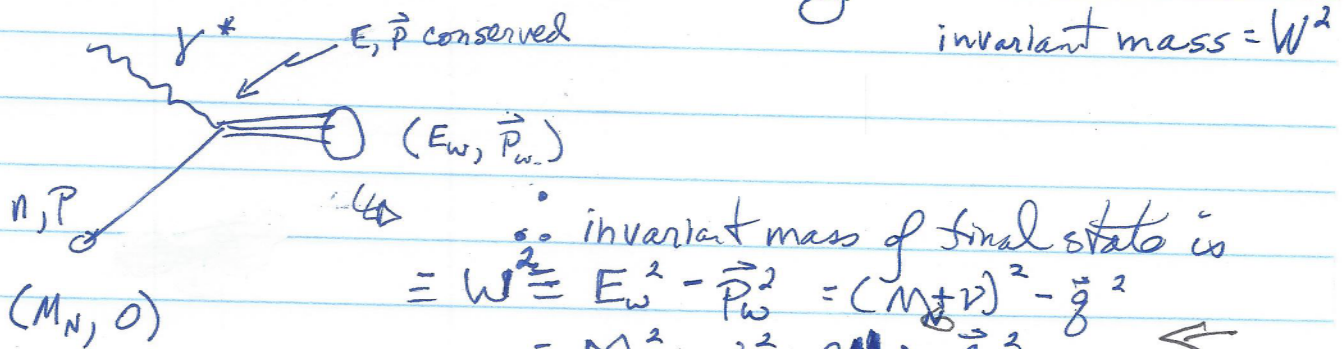 γ* E, p⃗ conserved
invariant mass = W²
(E_w, p⃗_w)
n, P
∴ invariant mass of final state is
≡ W² ≡ E_w² - p⃗_w² = (M_N + ν)² - q⃗²
(M_N, 0)